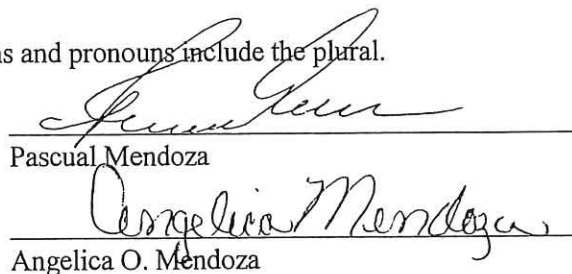 ns and pronouns include the plural.
Pascual Mendoza
Angelica Mendoza
Angelica O. Mendoza